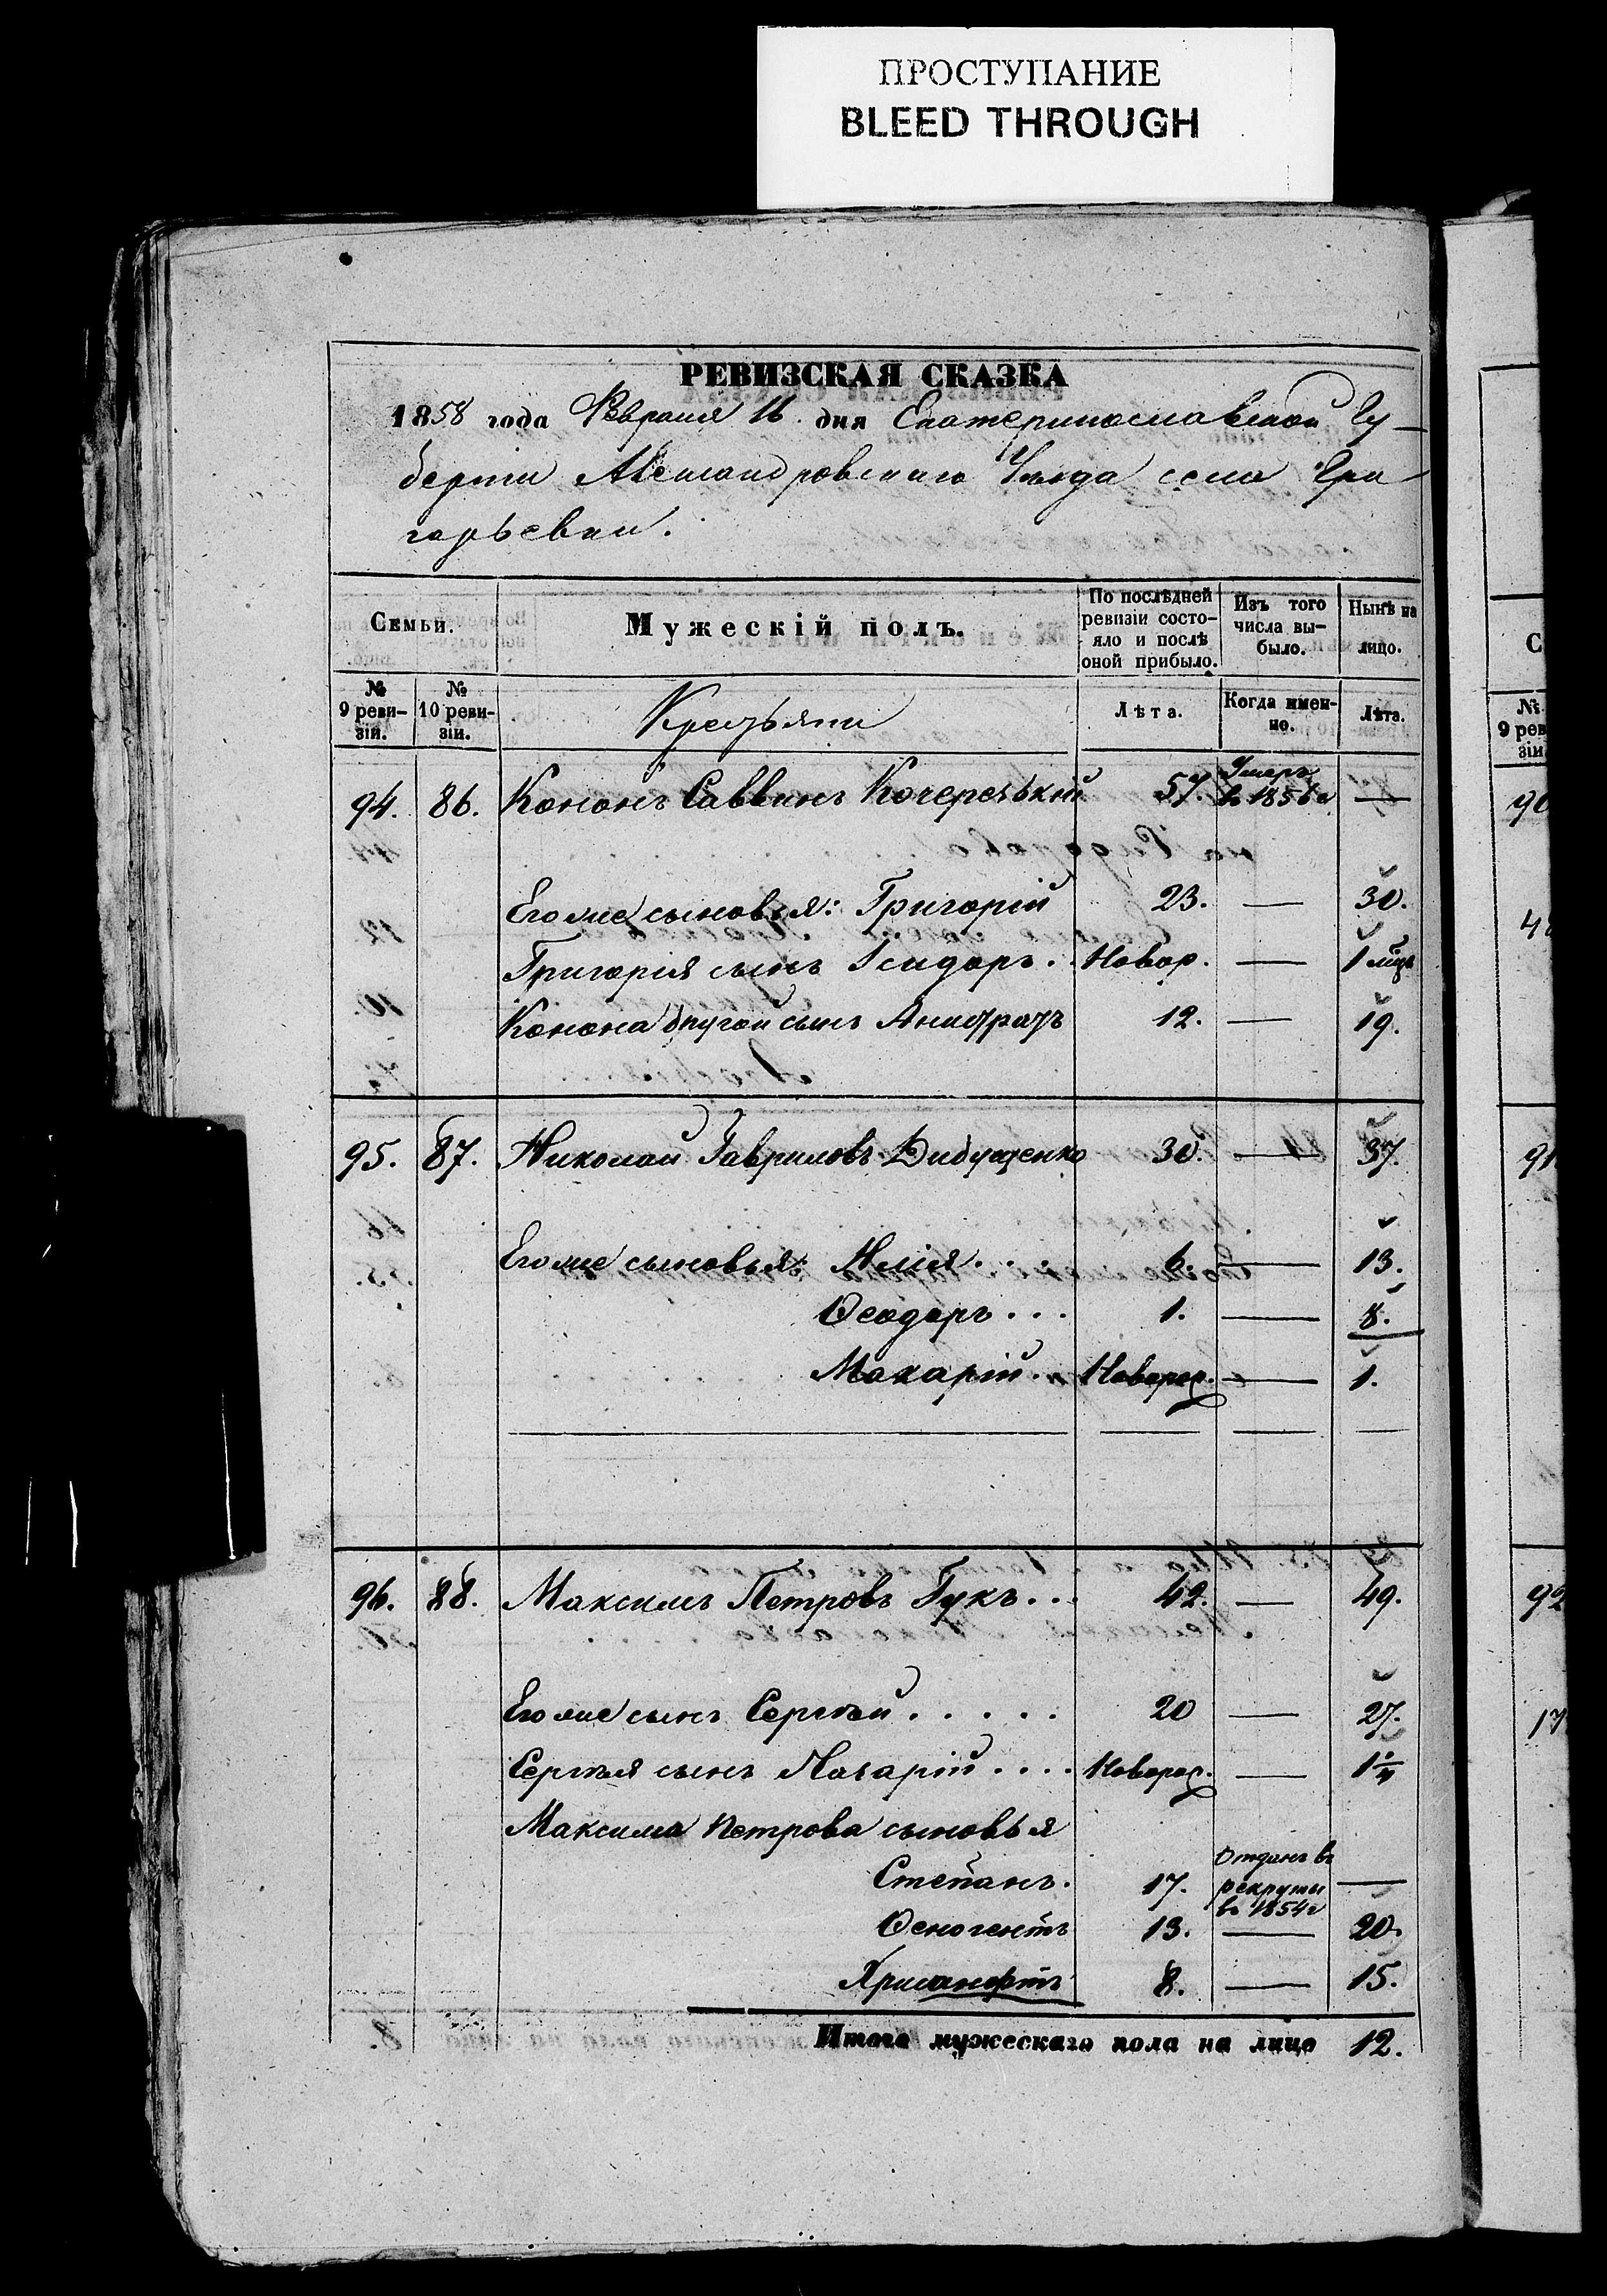 ПРОСТУПАНИЕ
BLEED THROUGH
РЕВИЗСКАЯ СКАЗКА
1858 года Февраля 16 дня Екатеринославской Гу-
берніи Александровскаго Уѣзда села Гри
горьевки.
Семьи. Мужескій полъ. По послѣдней ревизіи состо-яло и послѣ оной прибыло. Изъ того числа вы-было. Нынѣ на лицо.
№ 9 реви-зіи. № 10 реви-зіи. Крестьяни Лѣта. Когда имен-но. Лѣта.
94. 86. Кононъ Саввинъ 57. Умеръ в 1856 г —
Его же сыновья: Григорій 23. — 30.
Григорія сынъ Ісидоръ . . Новор. — 1 мѣц
Конона другой сынъ 12. — 19.
95. 87. Николай Гавриловъ 30. — 37.
Его же сыновья: Илія . . . 6. — 13.
Ѳеодоръ . . . 1. — 8.
Макарій . . Новорож. — 1.
96. 88. Максимъ Петровъ Гукъ . . . 42. — 49.
Его же сынъ Сергѣй . . . . . 20 — 27.
Сергѣя сынъ Назарій . . . . Новорож. —
Максима Петрова сыновья
Степанъ. 17. Отданъ въ рекруты в 1854 г —
13. — 20.
Хрисанфъ 8. — 15.
Итого мужескаго пола на лицо 12.